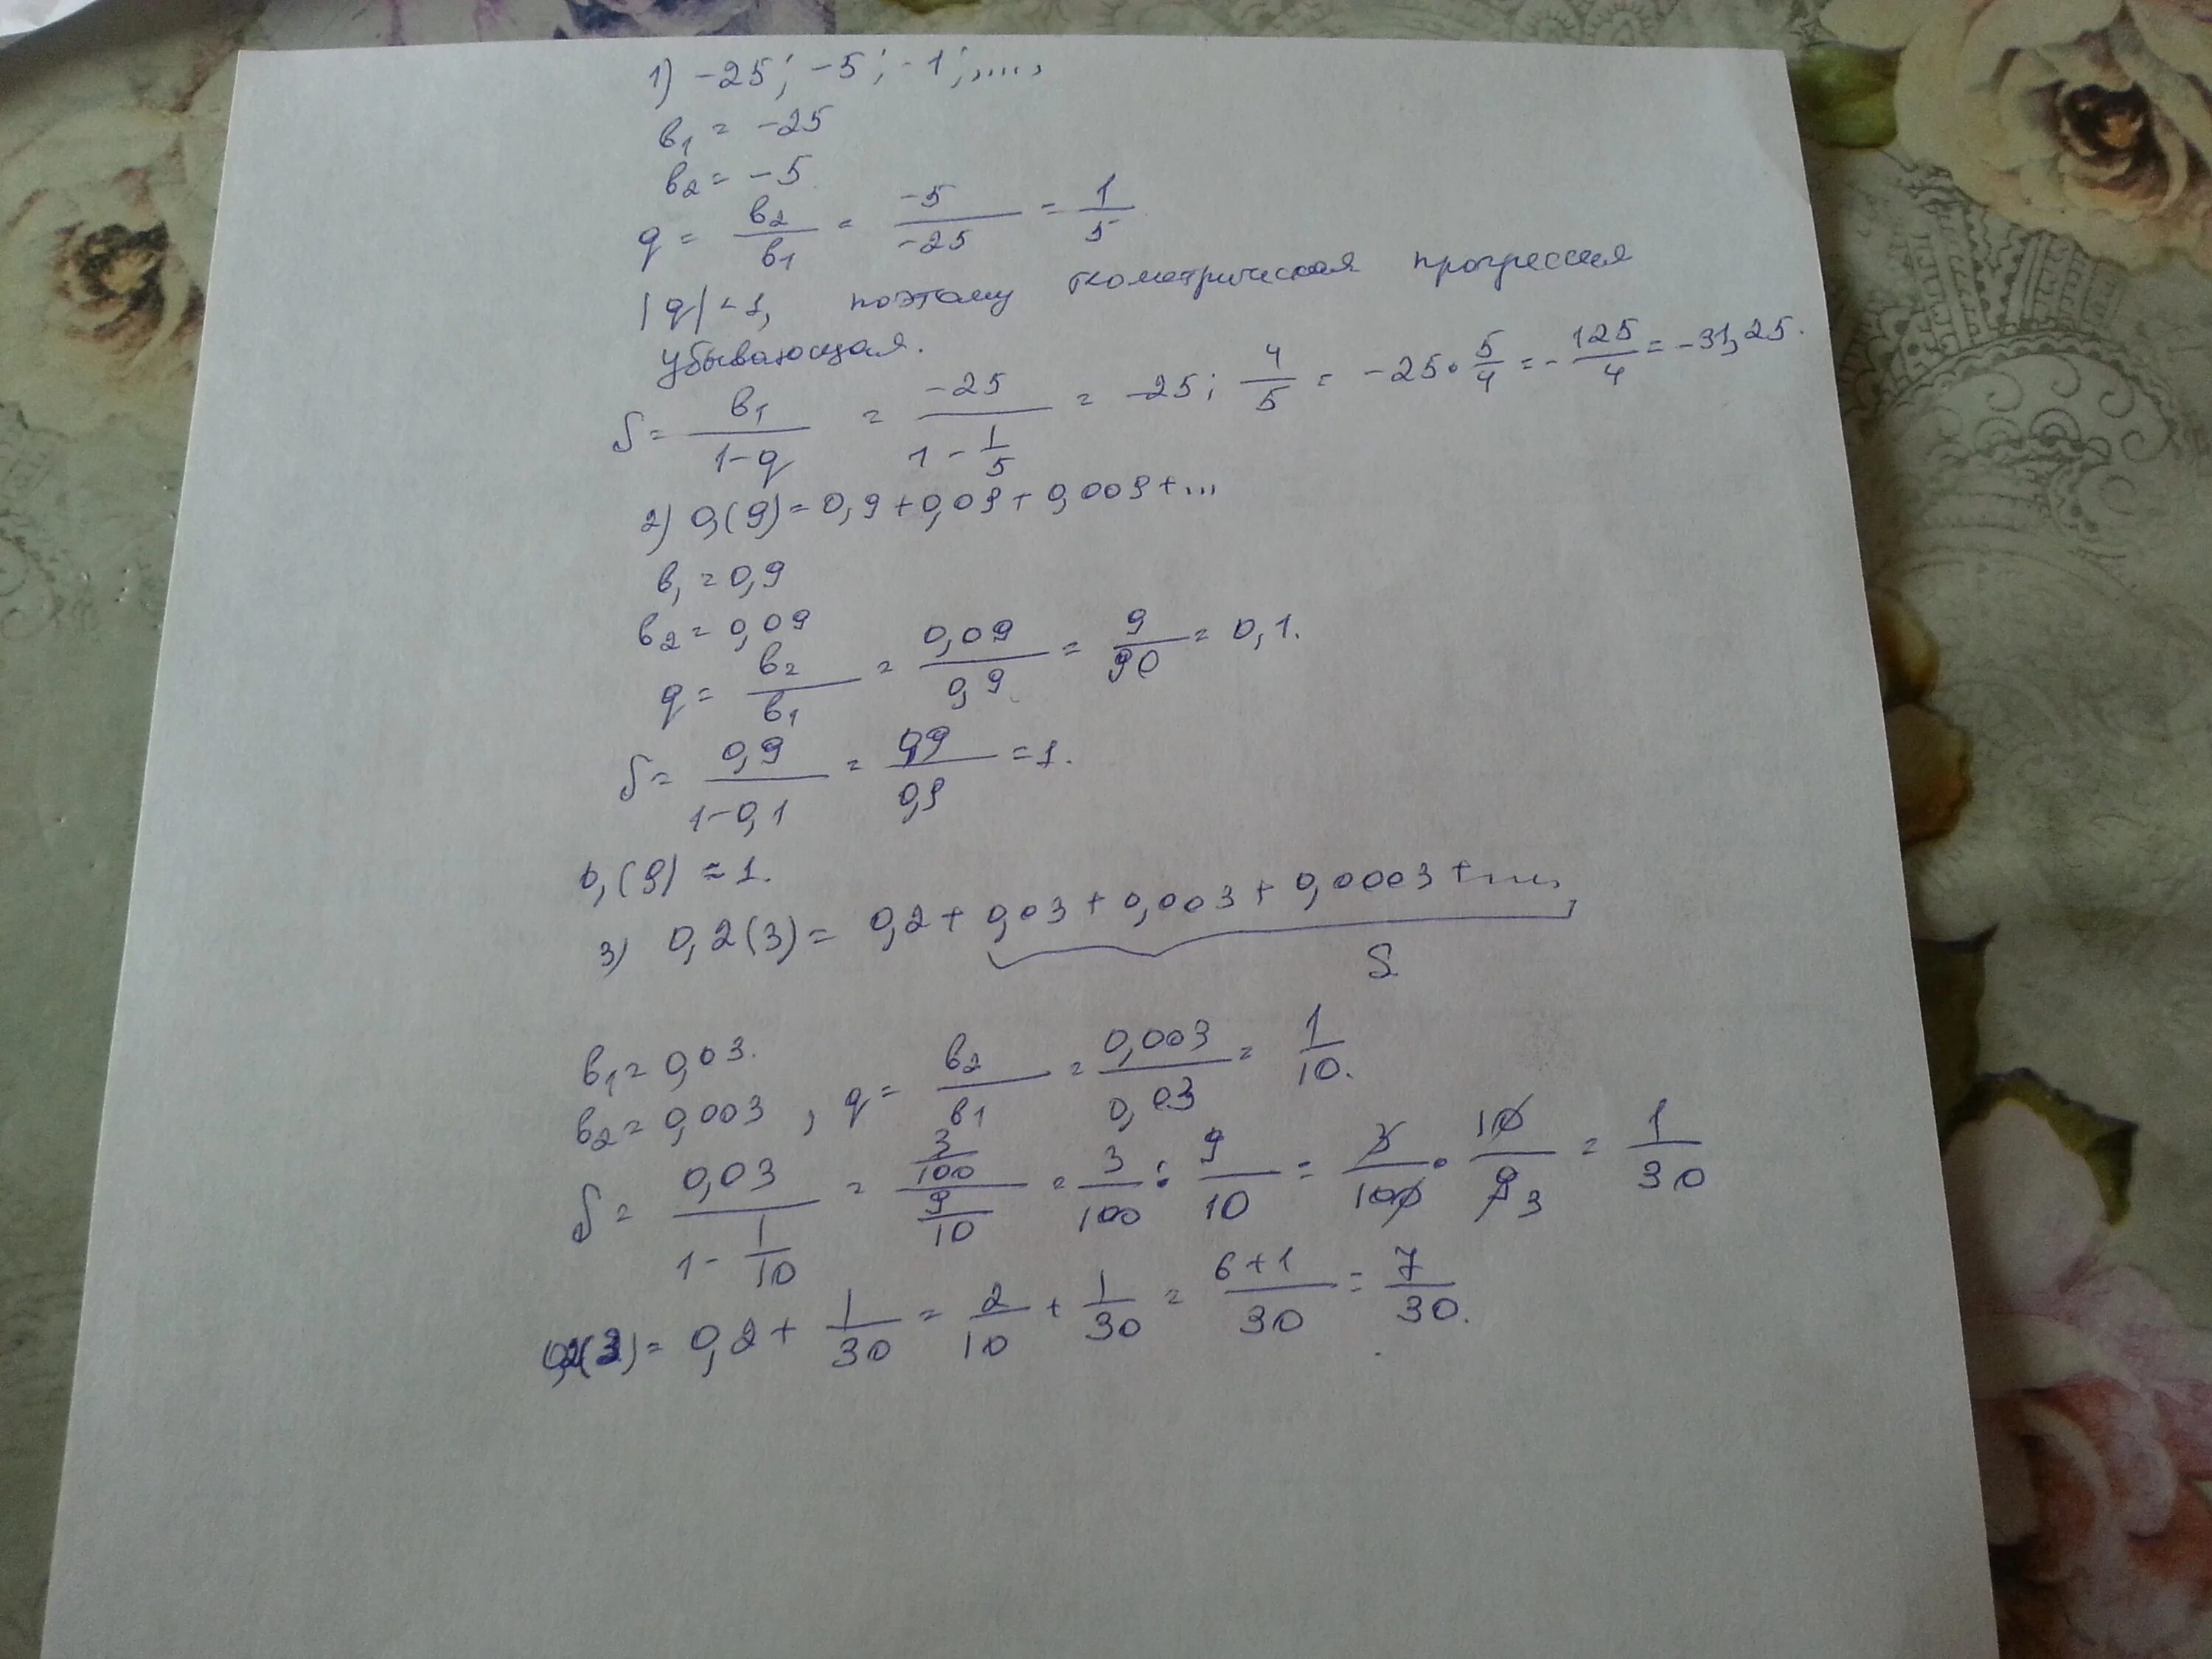 1) -25; -5; -1; ,....,
b₁ = -25
b₂ = -5
q = b₂/b₁ = -5/-25 = 1/5
|q| < 1, поэтому геометрическая прогрессия
убывающая.
S = b₁/(1-q) = -25/(1 - 1/5) = -25 : 4/5 = -25 · 5/4 = -125/4 = -31,25.
2) 0,(9) = 0,9 + 0,09 + 0,009 + ...
b₁ = 0,9
b₂ = 0,09
q = b₂/b₁ = 0,09/0,9 = 9/90 = 0,1.
S = 0,9/(1-0,1) = 0,9/0,9 = 1.
0,(9) = 1.
3) 0,2(3) = 0,2 + 0,03 + 0,003 + 0,0003 + ....
S
b₁ = 0,03.
b₂ = 0,003, q = b₂/b₁ = 0,003/0,03 = 1/10.
S = 0,03/(1 - 1/10) = (3/100)/(9/10) = 3/100 : 9/10 = 3/100 · 10/9 3 = 1/30
0,2(3) = 0,2 + 1/30 = 2/10 + 1/30 = (6+1)/30 = 7/30.